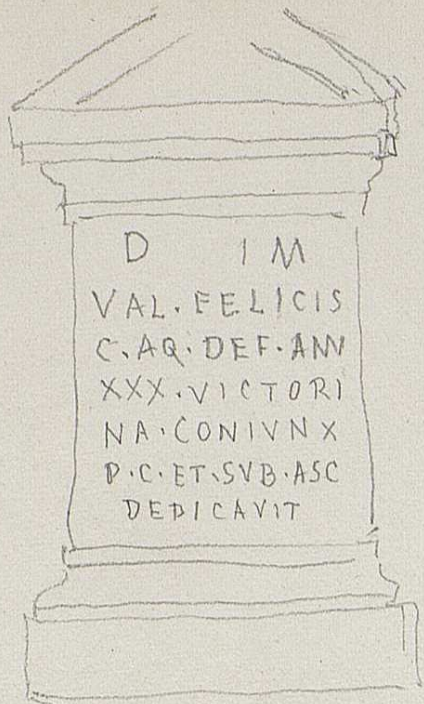 D I M
VAL. FELICIS
C. AQ. DEF. ANN
XXX. VICTORI
NA. CONIVNX
P. C. ET. SVB. ASC
DEDICAVIT